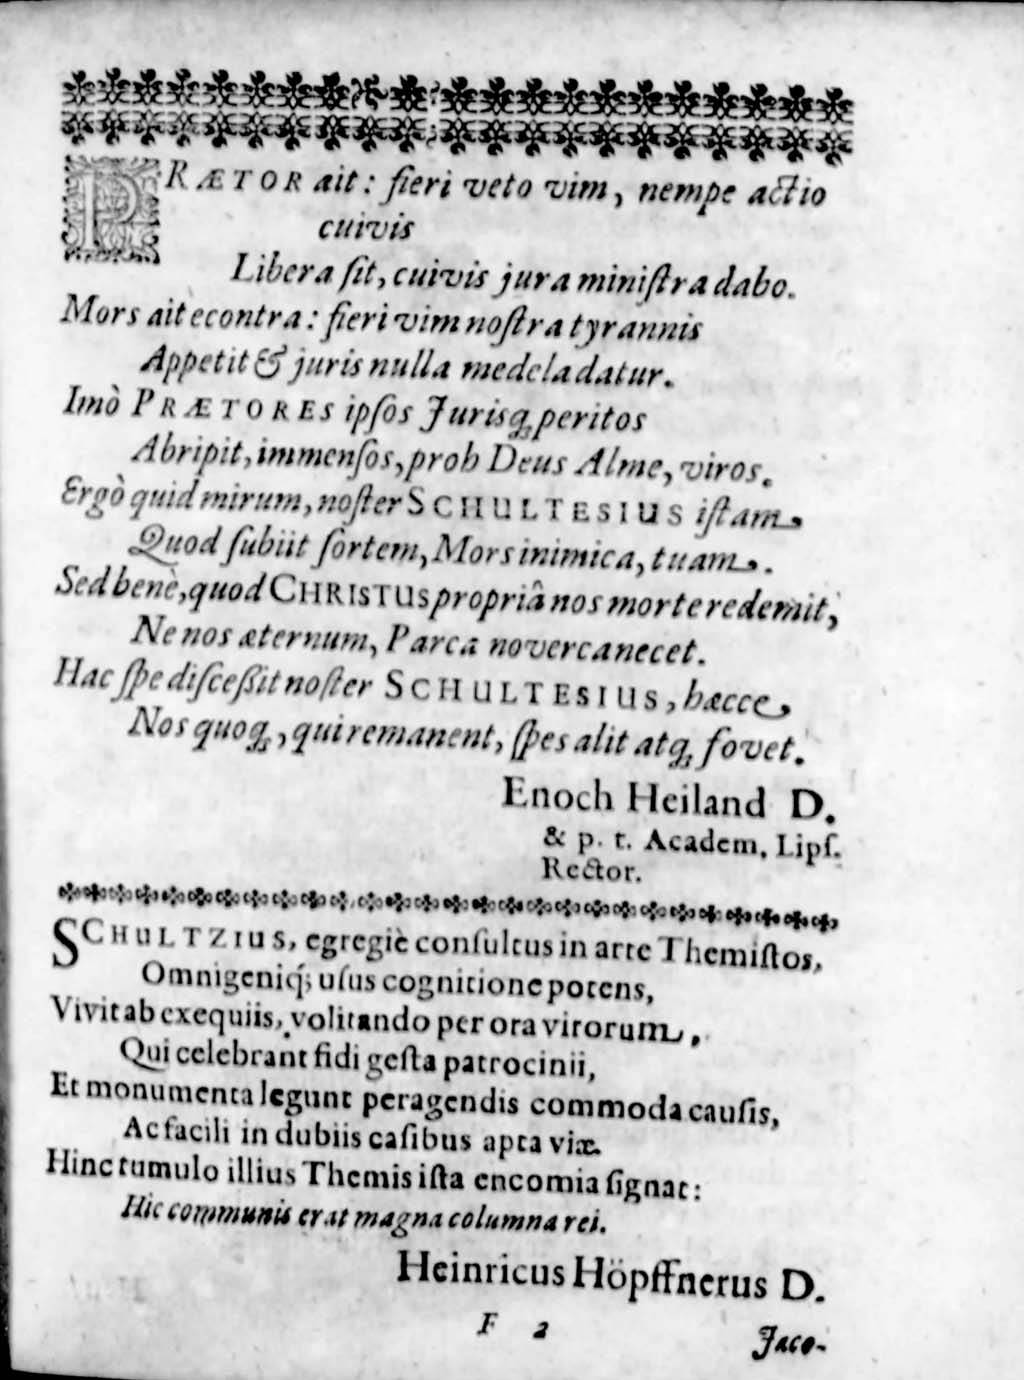 PRÆTOR ait: fieri veto vim, nempe actio
cuivis
Libera ſit, cuivis jura miniſtra dabo.
Mors ait econtra: fieri vim noſtra tyrannis
Appetit & juris nulla medela datur.
Imò PRÆTORES ipſos Jurisq; peritos
Abripit, immenſos, proh Deus Alme, viros.
Ergò quid mirum, noſter SCHULTESIUS iſtam,
Quod ſubiit ſortem, Mors inimica, tuam.
Sed benè, quod CHRISTUS propriâ nos morte redemit,
Ne nos æternum, Parca noverca necet.
Hac ſpe diſceßit noſter SCHULTESIUS, hæcce,
Nos quoq;, qui remanent, ſpes alit atq; fovet.
Enoch Heiland D.
& p. t. Academ. Lipſ.
Rector.
SCHULTZIUS, egregiè conſultus in arte Themiſtos,
Omnigeniq́; uſus cognitione potens,
Vivit ab exequiis, volitando per ora virorum,
Qui celebrant fidi geſta patrocinii,
Et monumenta legunt peragendis commoda cauſis,
Ac facili in dubiis caſibus apta viæ.
Hinc tumulo illius Themis iſta encomia ſignat:
Hic communis erat magna columna rei.
Heinricus Höpffnerus D.
F 2
Jaco-